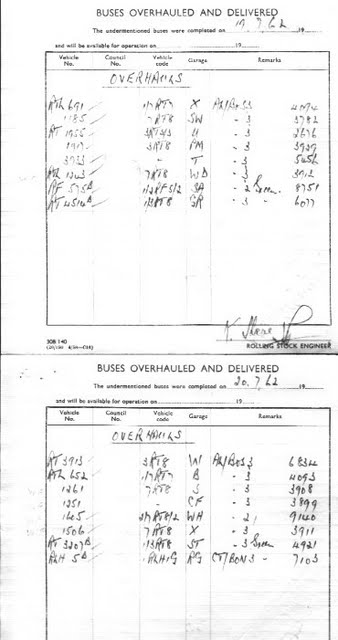 BUSES OVERHAULED AND DELIVERED
The undermentioned buses were completed on 19.7.62 19
and will be available for operation on 19
Vehicle No. Council No. Vehicle code Garage Remarks
OVERHAULS
RTL 691 1/7RT7 X 3 4094
1185 7RT8 SW - 3 3782
RT 1955 3RT8/3 U - 3 2676
3RT8 PM - 3 3929
3933 - T - 3 5456
RTL 1243 7RT8 WD - 3 3912
RF 575B 1/2RF5/2 SA - 2 8751
RT 4514B 1/3RT8 GR - 3 6077
ROLLING STOCK ENGINEER
308 140
BUSES OVERHAULED AND DELIVERED
The undermentioned buses were completed on 20.7.62 19
and will be available for operation on 19
Vehicle No. Council No. Vehicle code Garage Remarks
OVERHAULS
RT 3913 3RT8 W 3 6834
RTL 652 1/7RT7 B - 3 4093
1261 7RT8 S - 3 3908
1251 - CF - 3 3899
1605 WH - 2 9140
1506 7RT8 X - 3 3911
RT 3207B 1/3RT8 ST - 3 4921
RLH 5B 1RLH1G RG 7103